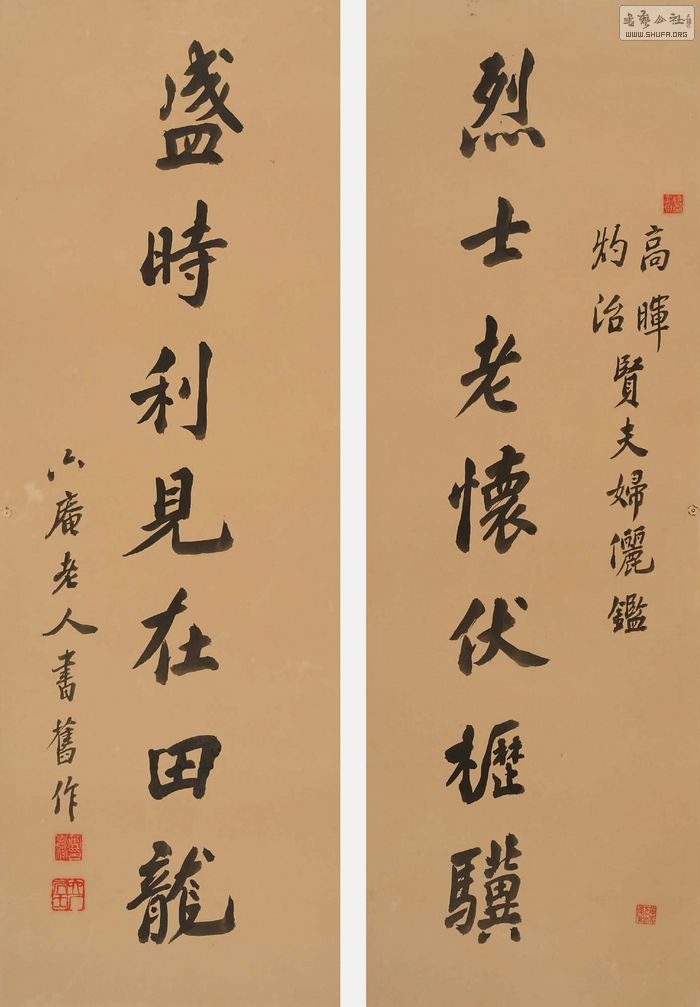 書藝公社
WWW.SHUFA.ORG
高暉
灼治
賢夫婦儷鑑
烈士老懷伏櫪驥
盛時利見在田龍
六庵老人書舊作